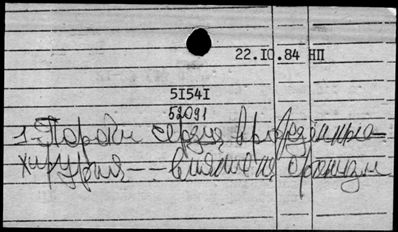 22.10.84 НП
51541
52091
1-Пороки сердца врожденные -
хирургия -- влияние на организм